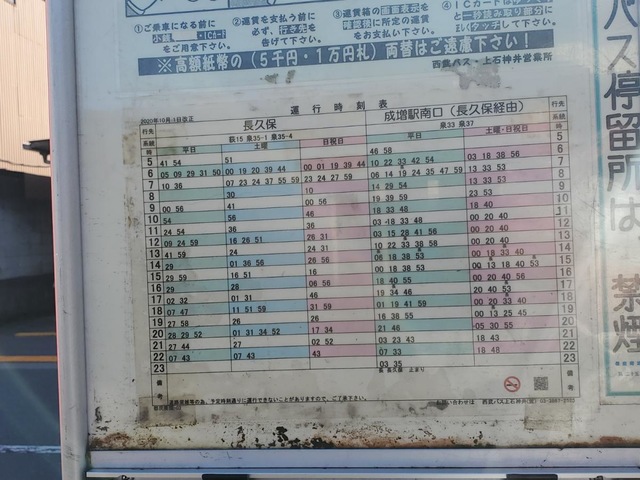 ①ご乗車になる前に
をご用意下さい。
②運賃を支払う前に
必ず、行先を
告げて下さい。
③運賃箱の画面表示を
確認後に所定の運賃
をお支払い下さい。
※高額紙幣の(5千円・1万円札)両替はご遠慮下さい!
西武バス・上石神井営業所
運行時刻表
2020年10月1日改正
行先 長久保 成増駅南口(長久保経由) 行先
系統 荻15 泉35-1 泉35-4 泉33 泉37 系統
時 平日 土曜 日祝日 平日 土曜・日祝日 時
5 41 54 51 46 58 5
6 05 09 29 31 50 00 19 20 39 44 00 01 19 39 44 10 22 33 42 54 03 18 38 56 6
7 10 36 07 23 24 37 55 59 23 24 27 59 06 14 19 24 35 47 59 13 33 53 7
8 30 10 14 29 54 13 33 53 8
9 00 56 41 00 56 19 39 59 23 53 9
10 54 56 46 18 33 48 18 40 10
11 24 54 36 36 03 18 33 48 00 20 40 11
12 09 24 59 16 26 51 26 31 03 15 28 41 56 00 20 40 12
13 41 59 24 24 31 10 22 33 38 58 00 20 40 13
14 29 01 36 56 26 56 06 18 38 53 00 18 33 40 14
15 29 59 16 51 16 00 18 38 53 00 13 18 40 53 15
16 29 28 06 56 18 40 55 00 20 40 56 16
17 02 32 01 31 46 19 34 46 20 40 53 17
18 07 29 11 51 59 31 59 01 19 41 59 00 20 33 40 18
19 27 58 26 26 16 38 55 00 13 25 45 19
20 28 29 52 01 31 34 52 17 34 21 46 05 30 55 20
21 27 44 27 02 52 03 23 43 18 43 21
22 07 43 07 43 43 07 33 18 48 22
23 03 35 23
備考 長 長久保 止まり 備考
道路混雑等の為、予定時刻通りに運行できないことがありますので、ご了承下さい。
お問い合わせは 西武バス上石神井(営)
バス停留所は
禁煙